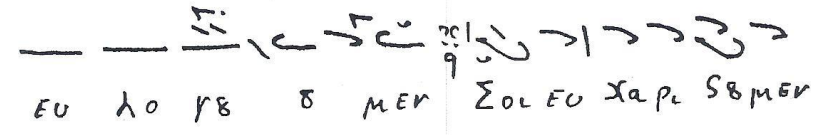 ευ λο γȣ ȣ μεν Σοι ευ χα ρι ϛȣ μεν